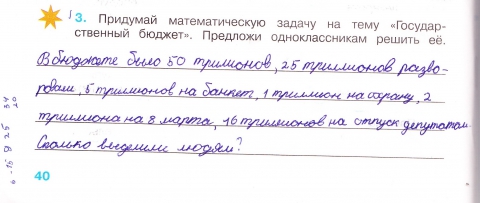 3. Придумай математическую задачу на тему «Государ-
ственный бюджет». Предложи одноклассникам решить её.
В бюджете было 50 трилионов, 25 триллионов разво-
ровали, 5 триллионов на банкет, 1 триллион на охрану, 2
триллиона на 8 марта, 16 триллионов на отпуск депутатам.
Сколько выделили людям?
40